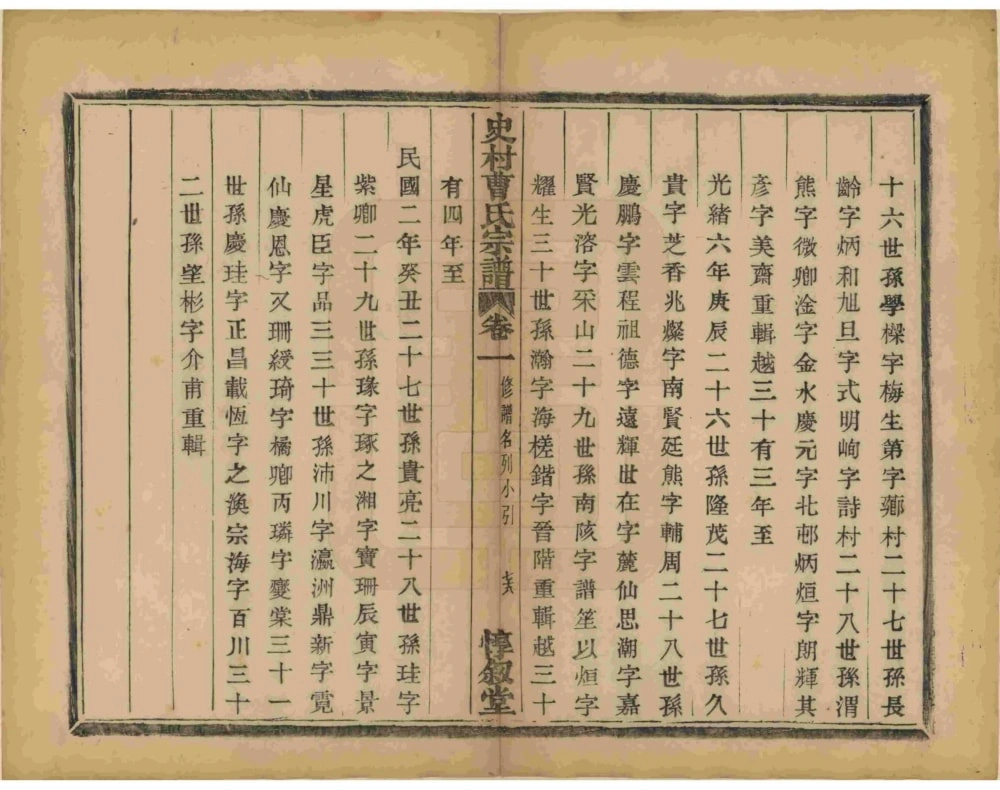 十六世孫學樑字梅生第字薌村二十七世孫長
齡字炳和旭旦字式明峋字詩村二十八世孫渭
熊字徵卿淦字金水慶元字北邨炳烜字朗輝其
彥字美齋重輯越三十有三年至
光緒六年庚辰二十六世孫隆茂二十七世孫久
貴字芝香兆燦字南賢廷熊字輔周二十八世孫
慶鵬字雲程祖德字遠輝世在字麓仙思潮字嘉
賢光溶字采山二十九世孫南陔字譜笙以烜字
耀生三十世孫瀚字海槎鍇字晉階重輯越三十
史村曹氏宗譜 卷一 修譜名列小引 惇敘堂
有四年至
民國二年癸丑二十七世孫貴亮二十八世孫珪字
紫卿二十九世孫瑑字琢之湘字寶珊辰寅字景
星虎臣字品三三十世孫沛川字瀛洲鼎新字霓
仙慶恩字又珊綬琦字橘卿丙璘字燮棠三十一
世孫慶珪字正昌載恆字之渙宗海字百川三十
二世孫望彬字介甫重輯